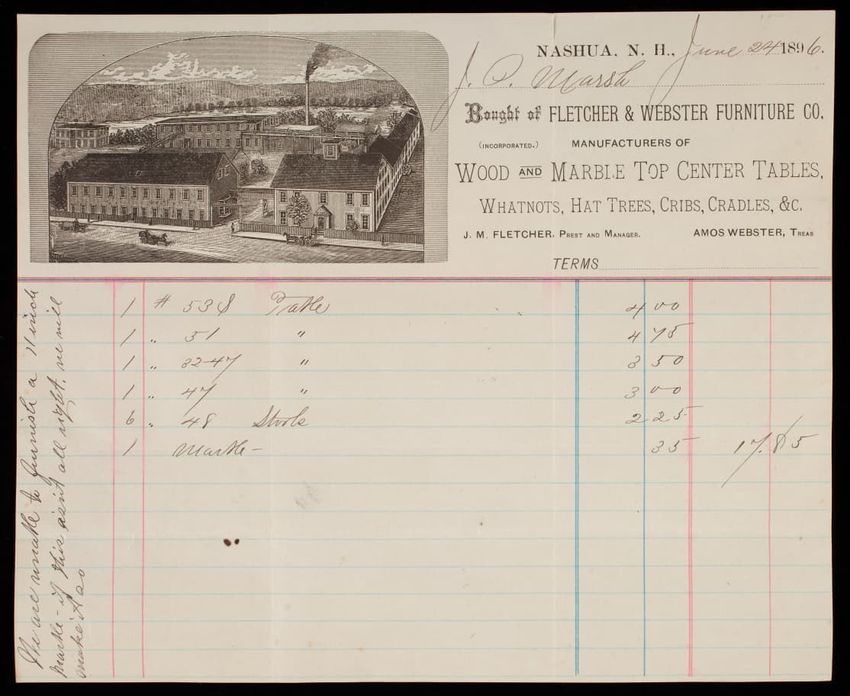 NASHUA, N. H., June 24 1896.
J. P. Marsh
Bought of FLETCHER & WEBSTER FURNITURE CO.
(INCORPORATED.) MANUFACTURERS OF
WOOD AND MARBLE TOP CENTER TABLES,
WHATNOTS, HAT TREES, CRIBS, CRADLES, &C.
J. M. FLETCHER, PREST AND MANAGER. AMOS WEBSTER, TREAS
TERMS
1 # 538 Table 4 00
1 " 51 " 4 75
1 " 32-47 " 3 50
1 " 47 " 3 00
6 " 48 Stools 2 25
1 Marble - 35 17.85
We are unable to furnish a 11 inch
Marble - if this aint all right, we will
make it so